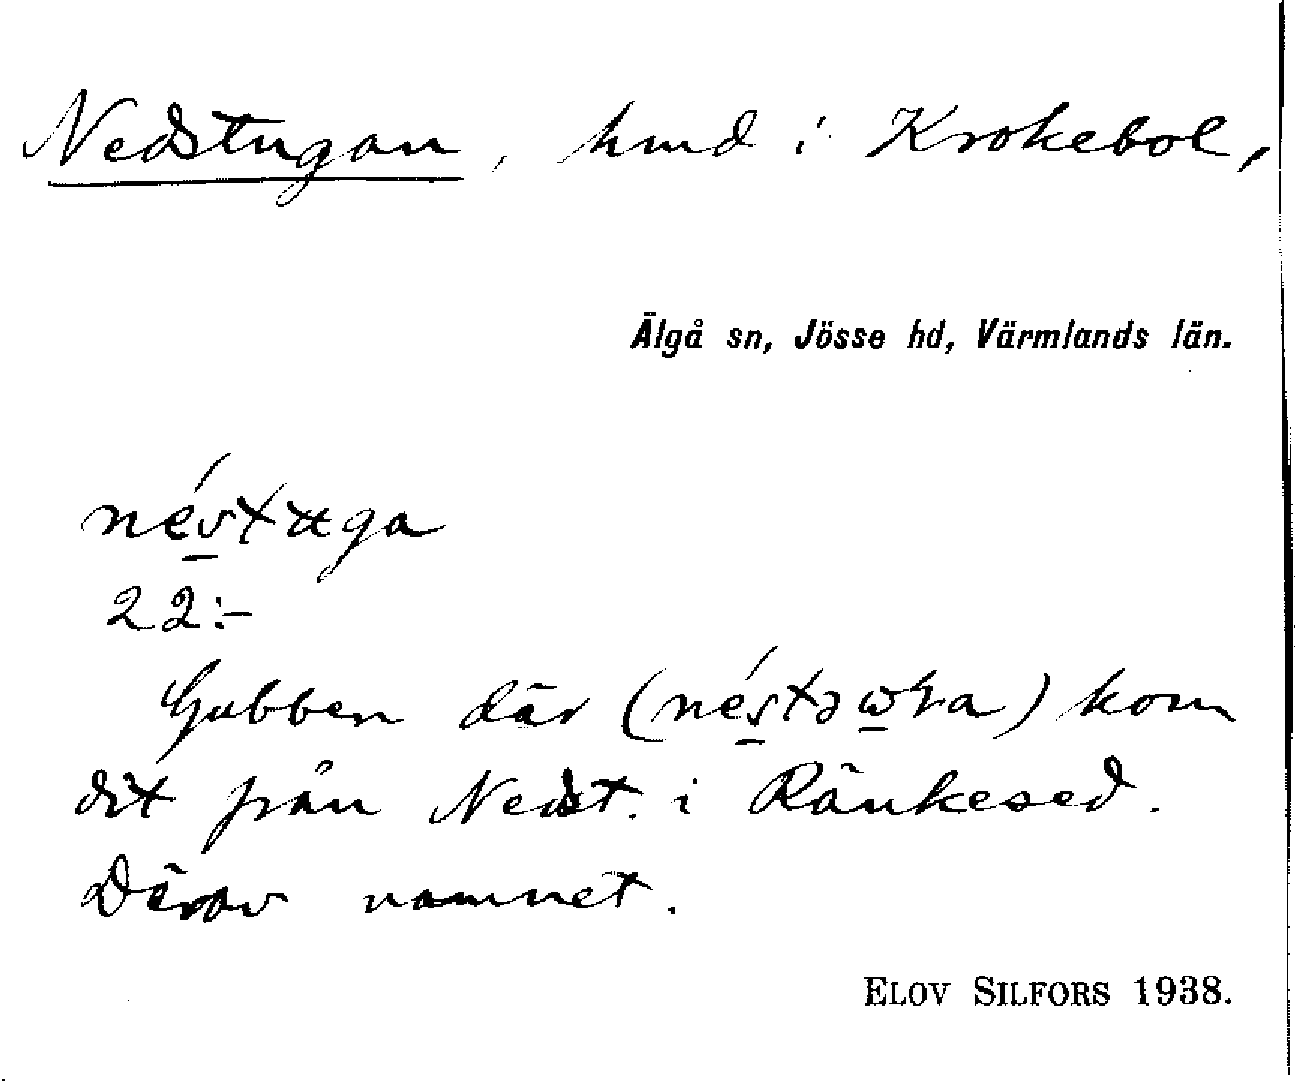 Nedstugan, hmd i Krokebol,
Älgå sn, Jösse hd, Värmlands län.
néstuga
22:-
Gubben där (néstə) kom
dit från Nedst. i Ränkesed.
Därav namnet.
ELOV SILFORS 1938.